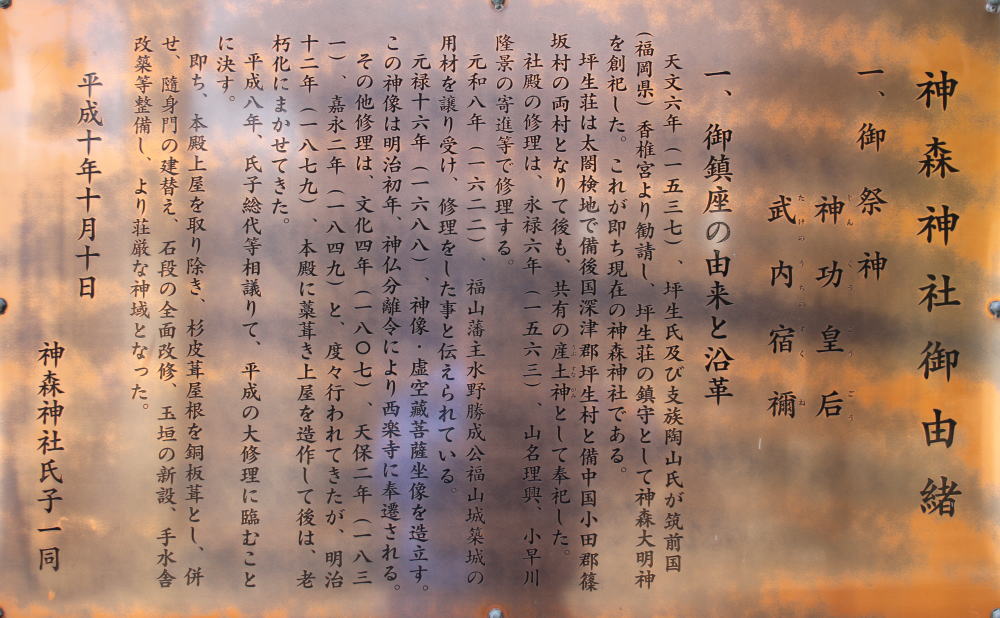 神森神社御由緒
一、御祭神
神功皇后
じんぐうこうごう
武内宿禰
たけのうちのすくね
一、御鎮座の由来と沿革
天文六年（一五三七）、坪生氏及び支族陶山氏が筑前国
（福岡県）香椎宮より勧請し、坪生荘の鎮守として神森大明神
を創祀した。これが即ち現在の神森神社である。
坪生荘は太閤検地で備後国深津郡坪生村と備中国小田郡篠
坂村の両村となりて後も、共有の産土神として奉祀した。
社殿の修理は、永禄六年（一五六三）、山名理興、小早川
隆景の寄進等で修理する。
元和八年（一六二二）、福山藩主水野勝成公福山城築城の
用材を譲り受け、修理をした事と伝えられている。
元禄十六年（一六八八）、神像・虚空蔵菩薩坐像を造立す。
この神像は明治初年、神仏分離令により西楽寺に奉遷される。
その他修理は、文化四年（一八〇七）、天保二年（一八三
一）、嘉永二年（一八四九）と、度々行われてきたが、明治
十二年（一八七九）、本殿に藁葺き上屋を造作して後は、老
朽化にまかせてきた。
平成八年、氏子総代等相議りて、平成の大修理に臨むこと
に決す。
即ち、本殿上屋を取り除き、杉皮葺屋根を銅板葺とし、併
せ、随身門の建替え、石段の全面改修、玉垣の新設、手水舎
改築等整備し、より荘厳な神域となった。
平成十年十月十日
神森神社氏子一同